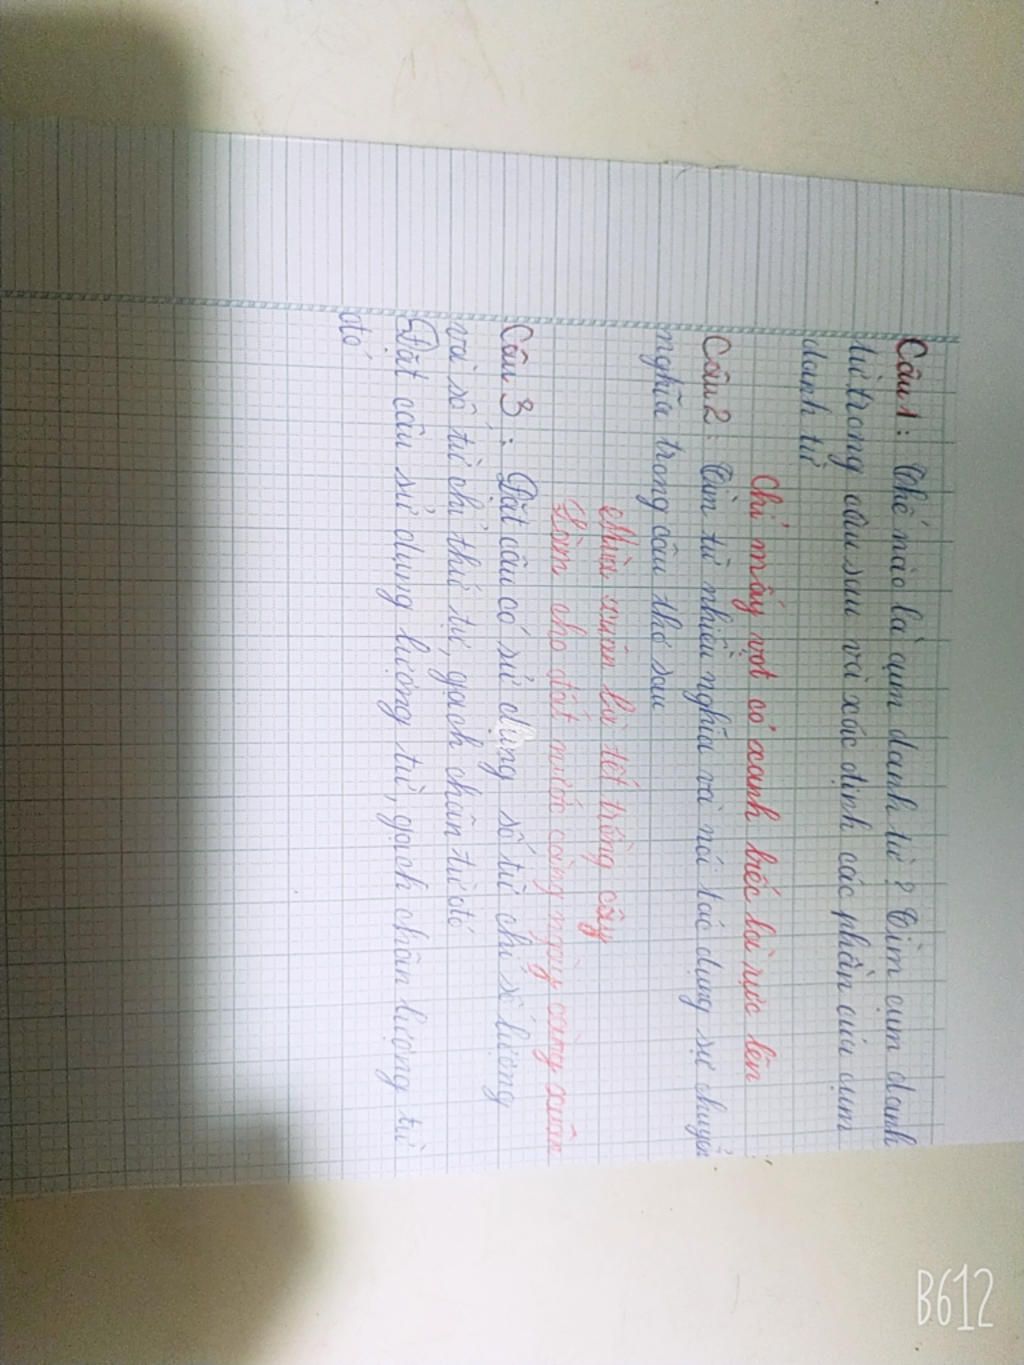 Câu 1: Thế nào là cụm danh từ? Tìm cụm danh
từ trong câu sau và xác định các phần của cụm
danh từ
Chỉ mấy vạt cỏ xanh biếc lại rực lên
Câu 2: Tìm từ nhiều nghĩa và nói tác dụng sự chuyển
nghĩa trong câu thơ sau
Mùa xuân là tết trồng cây
Làm cho đất nước càng ngày càng xuân
Câu 3: Đặt câu có sử dụng số từ chỉ số lượng
và số từ chỉ thứ tự, gạch chân từ đó
Đặt câu sử dụng lượng từ, gạch chân lượng từ
đó
B612